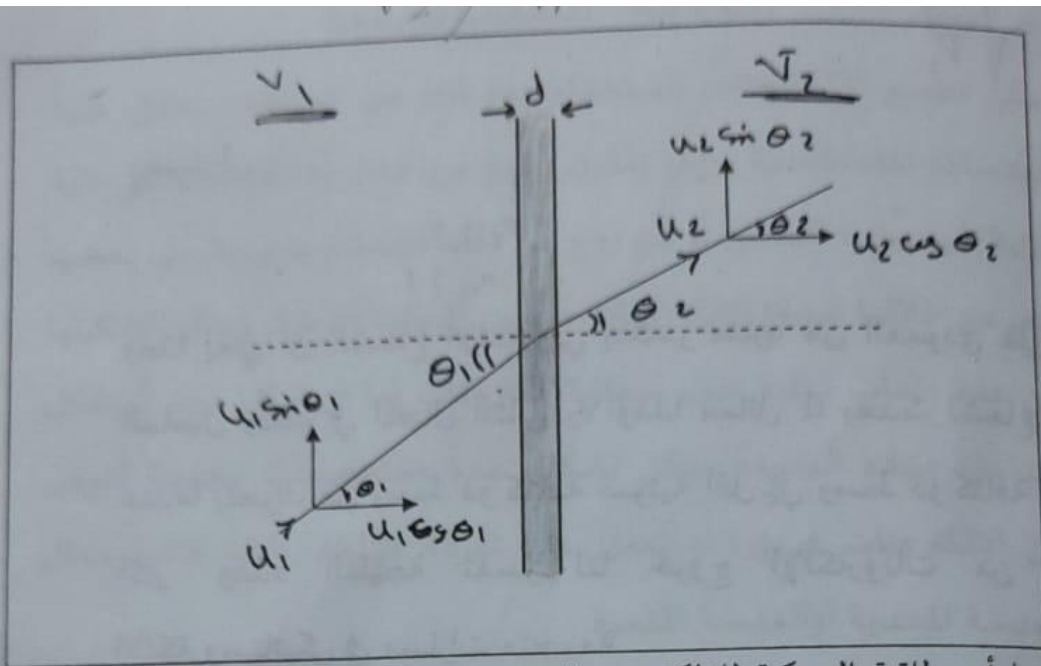 V1
d
V2
u2 sin θ2
u2
θ2
u2 cos θ2
θ2
θ1
u1 sin θ1
θ1
u1 cos θ1
u1